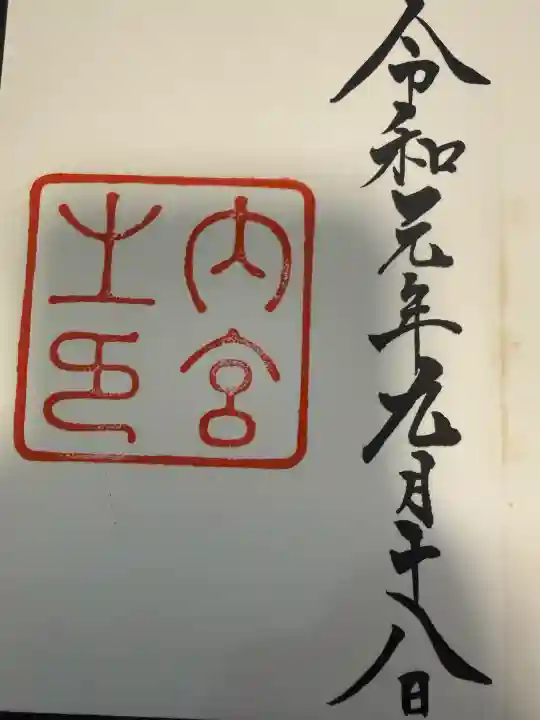 令和元年九月十八日
内宮
之印